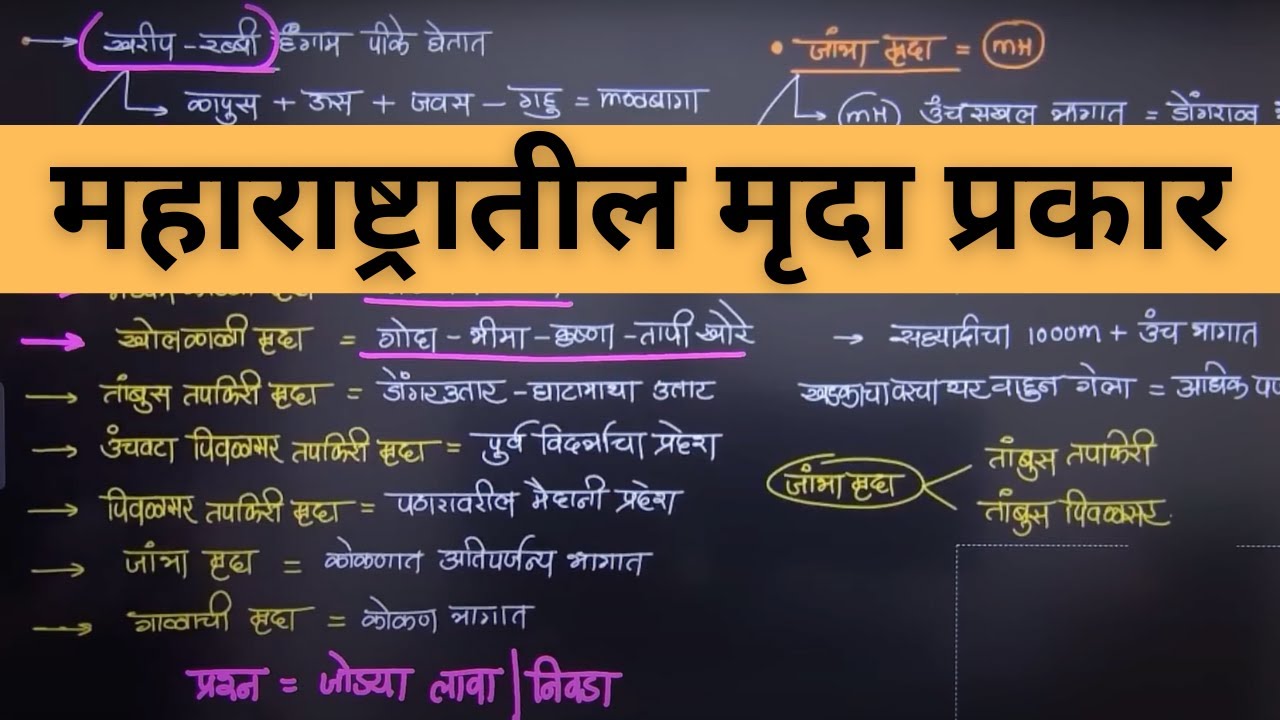 → खरीप - रब्बी हंगाम पीके घेतात
कापुस + ऊस + जवस - गहु = मळबागा
• जांभा मृदा = MH
MH उंचसखल भागात = डोंगराळ
महाराष्ट्रातील मृदा प्रकार
→ खोलकाळी मृदा = गोदा - भीमा - कृष्णा - तापी खोरे
→ तांबुस तपकिरी मृदा = डोंगरउतार - घाटामाथा उतार
→ उंचवटा पिवळसर तपकिरी मृदा = पुर्व विदर्भाचा प्रदेश
→ पिवळसर तपकिरी मृदा = पठारावरील मैदानी प्रदेश
→ जांभा मृदा = कोकणात अतिपर्जन्य भागात
→ गाळाची मृदा = कोकण भागात
प्रश्न = जोड्या लावा | निवडा
→ सह्याद्रीचा 1000m + उंच भागात
खडकाचा वरचा थर वाहुन गेला = अधिक
जांभा मृदा
तांबुस तपकिरी
तांबुस पिवळसर